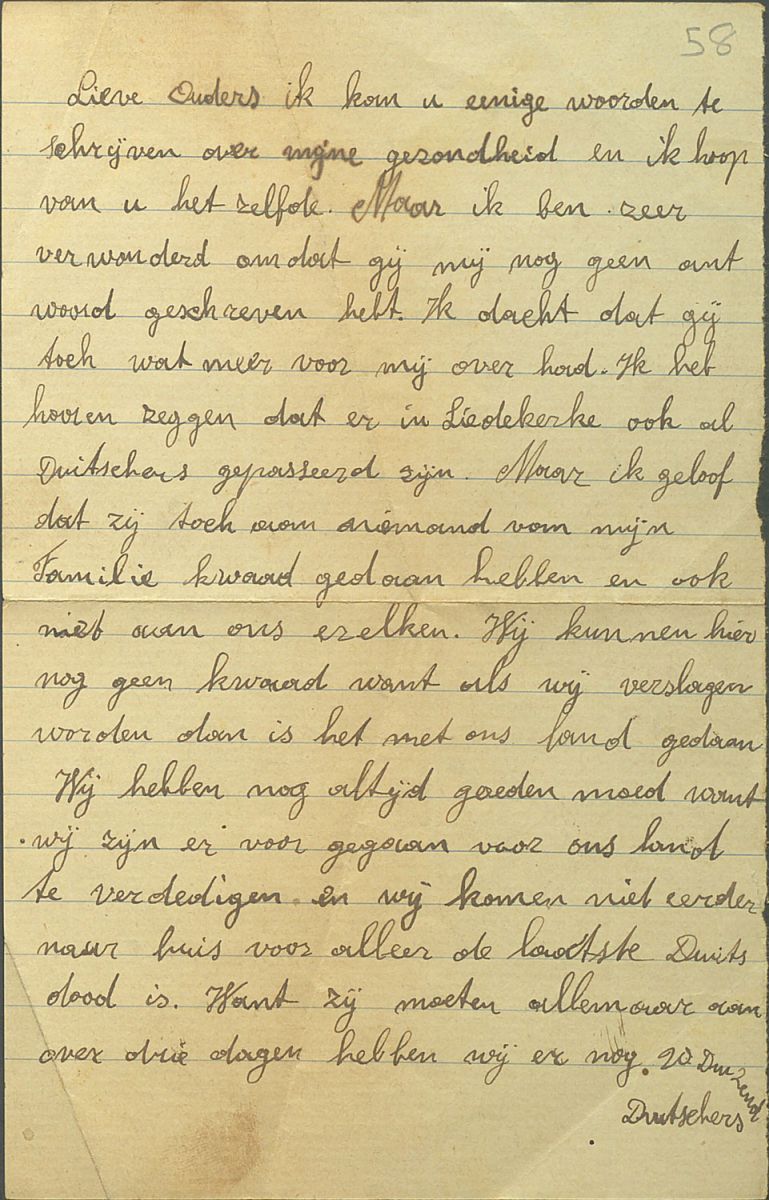 58
Lieve Ouders ik kan u eenige woorden te
schrijven over mijne gezondheid en ik hoop
van u het zelfde. Maar ik ben zeer
verwonderd omdat gij mij nog geen ant
woord geschreven hebt. Ik dacht dat gij
toch wat meer voor mij over had. Ik heb
hooren zeggen dat er in Liedekerke ook al
Duitschers gepasseerd zijn. Maar ik geloof
dat zij toch aan niemand van mijn
Familie kwaad gedaan hebben en ook
niet aan ons ezelken. Wij kunnen hier
nog geen kwaad want als wij verslagen
worden dan is het met ons land gedaan
Wij hebben nog altijd goeden moed want
wij zijn er voor gegaan voor ons land
te verdedigen en wij komen niet eerder
naar huis voor alleer de laatste Duits
dood is. Want zij moeten allemaar aan
over drie dagen hebben wij er nog. 20 Duizend
Duitschers